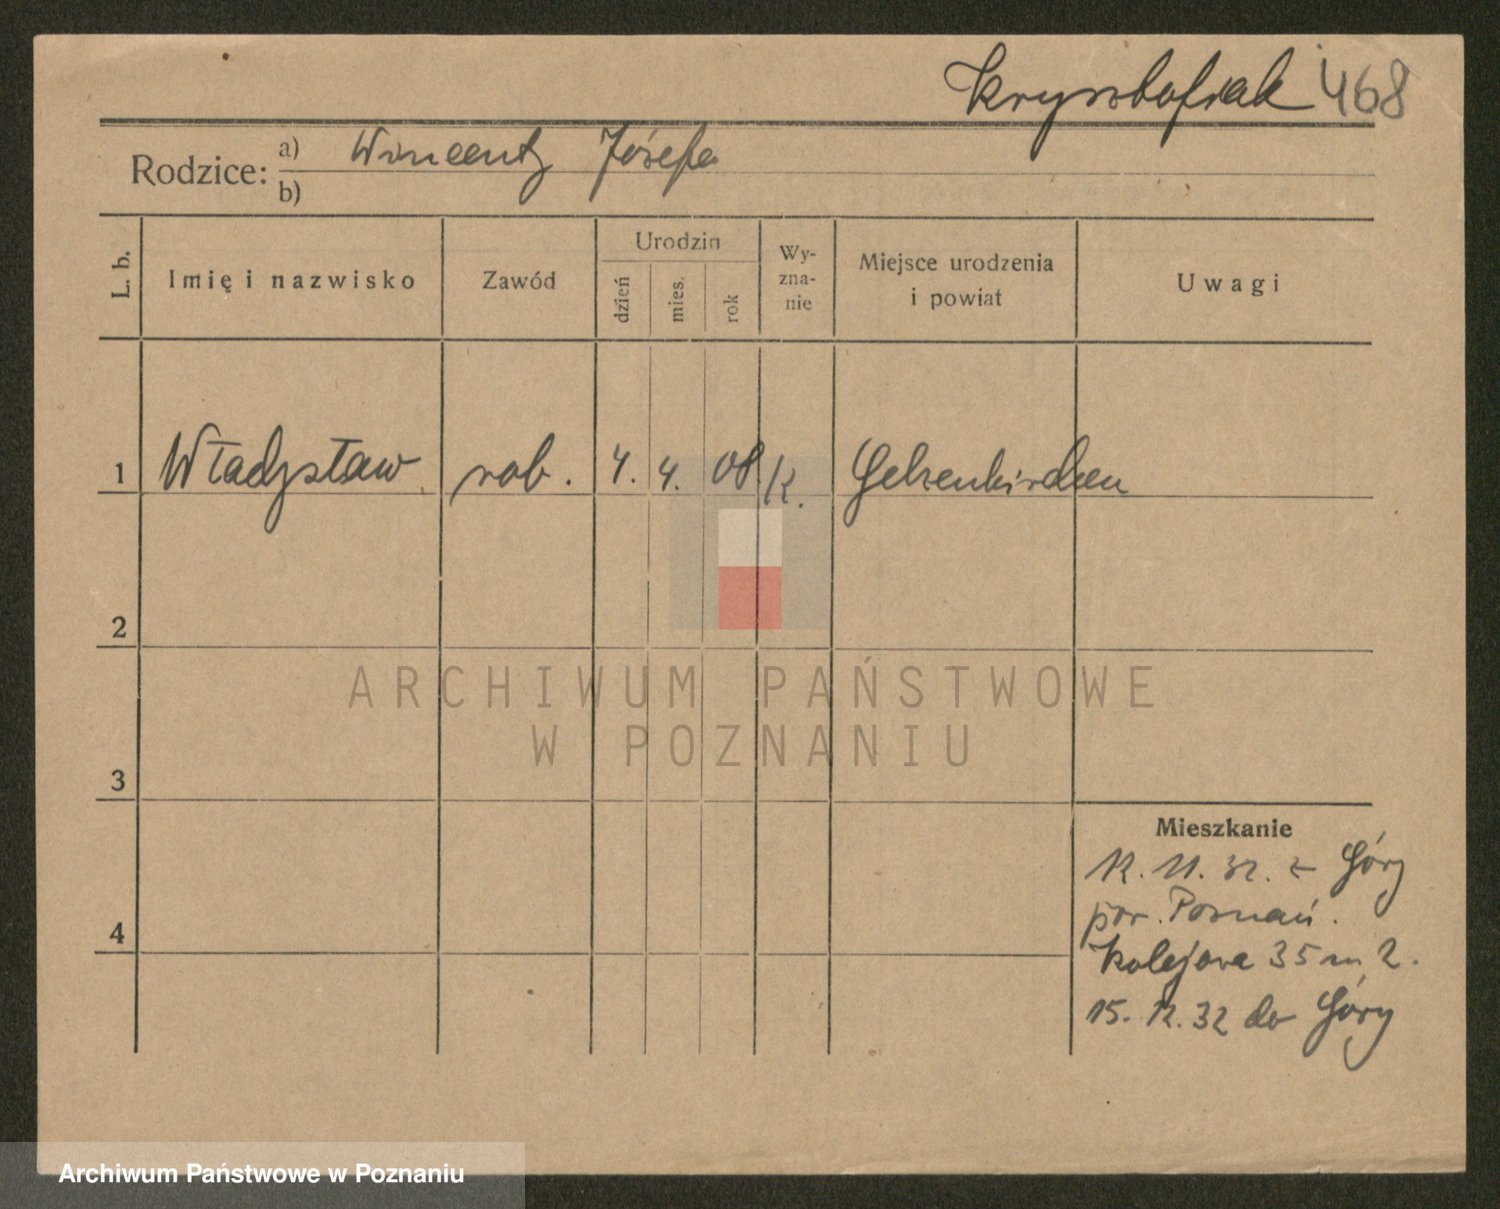 Krysztofiak 468
Rodzice: a) Wincenty Józefa
b)
L. b. Imię i nazwisko Zawód Urodzin dzień mies. rok Wy-zna-nie Miejsce urodzenia i powiat Uwagi
1 Władysław rob. 4. 4. 08 K. Gelsenkirchen
2
ARCHIWUM PAŃSTWOWE
W POZNANIU
3
Mieszkanie
12. 11. 32. z Góry
pow. Poznań.
4
Kolejowa 35 m 2.
15. 12. 32 do Góry
Archiwum Państwowe w Poznaniu